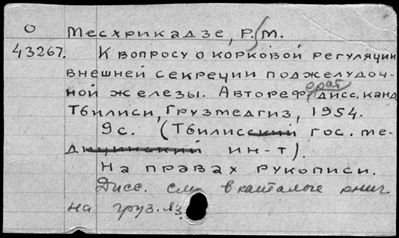 О Месхрикадзе, Р. М.
43267. К вопросу о корковой регуляции
внешней секреции поджелудоч-
ной железы. Автореферат дисс. канд.
Тбилиси, Грузмедгиз, 1954.
9с. (Тбилисский гос. ме-
дицинский ин-т).
На правах рукописи.
Дисс. см. в каталоге книг
на груз. яз.